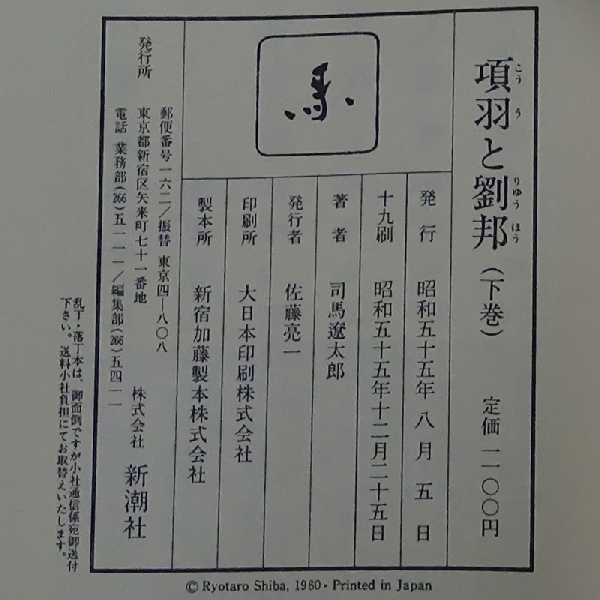 項羽と劉邦(下巻) 定価 一一〇〇円
こううとりゅうほう
発行 昭和五十五年八月五日
十九刷 昭和五十五年十二月二十五日
著者 司馬遼太郎
発行者 佐藤亮一
印刷所 大日本印刷株式会社
製本所 新宿加藤製本株式会社
発行所
郵便番号一六二/振替 東京四―八〇八
東京都新宿区矢来町七十一番地
電話 業務部(266)五一一一/編集部(266)五四一一
株式会社 新潮社
乱丁・落丁本は、御面倒ですが小社通信係宛御送付
下さい。送料小社負担にてお取替えいたします。
© Ryotaro Shiba, 1980・Printed in Japan